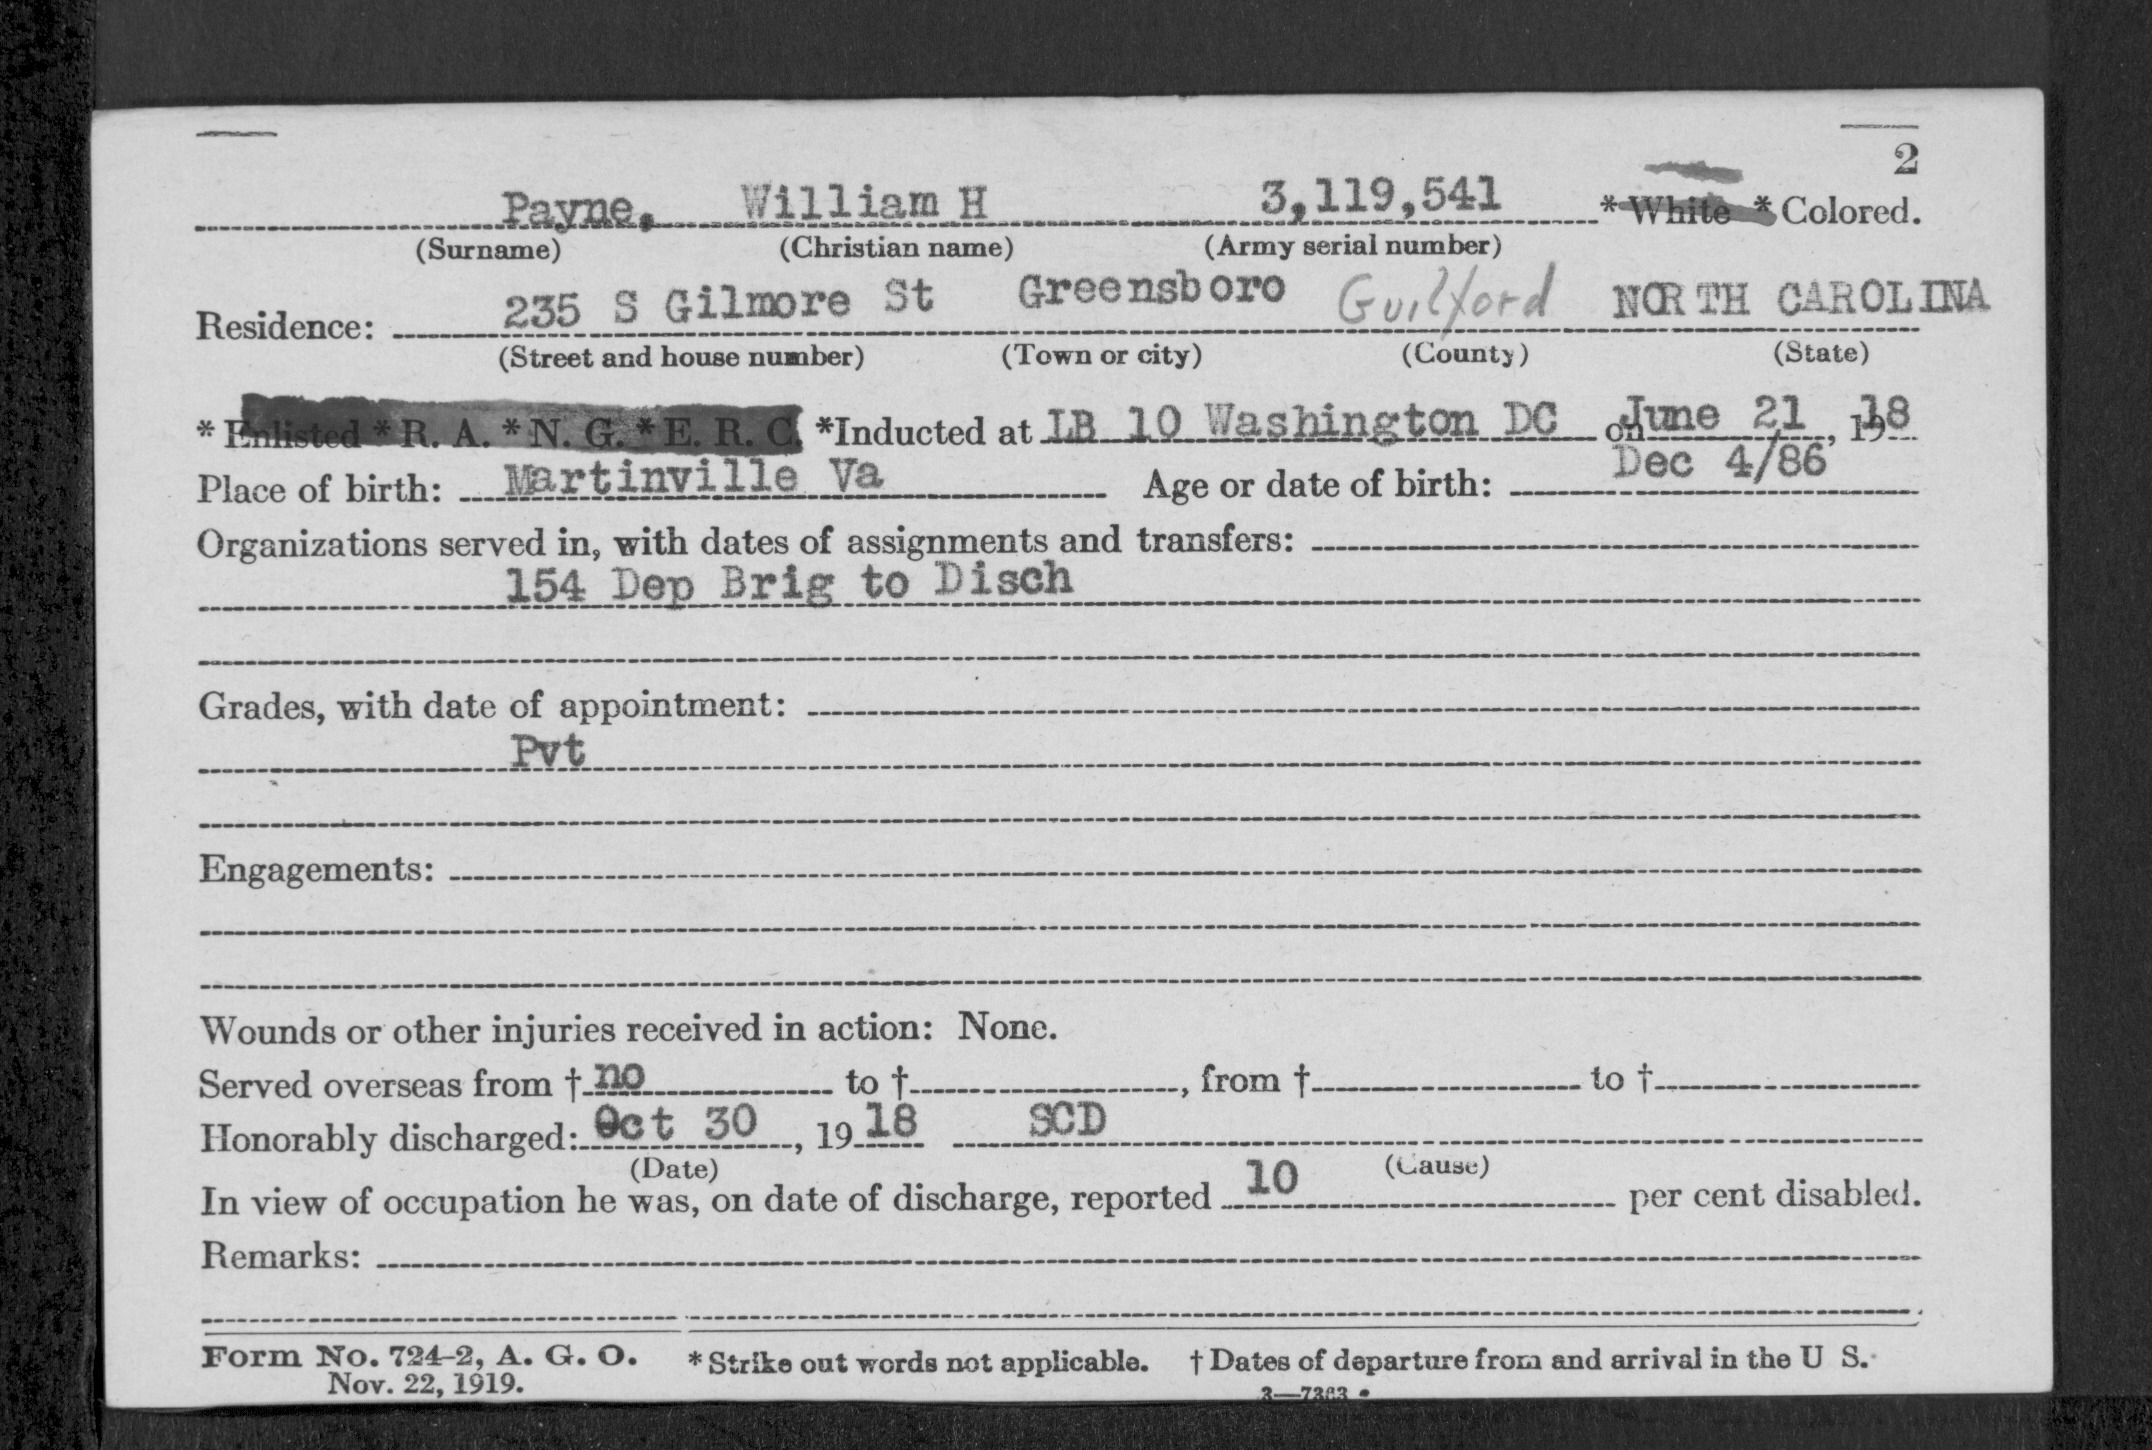 2
Payne, William H 3,119,541 *White *Colored.
(Surname) (Christian name) (Army serial number)
Residence: 235 S Gilmore St Greensboro Guilford NORTH CAROLINA
(Street and house number) (Town or city) (County) (State)
*Enlisted *R. A. *N. G. *E. R. C. *Inducted at LB 10 Washington DC on June 21, 1918
Place of birth: Martinville Va Age or date of birth: Dec 4/86
Organizations served in, with dates of assignments and transfers:
154 Dep Brig to Disch
Grades, with date of appointment:
Pvt
Engagements:
Wounds or other injuries received in action: None.
Served overseas from † no to †, from † to †
Honorably discharged: Oct 30, 1918 SCD
(Date) (Cause)
In view of occupation he was, on date of discharge, reported 10 per cent disabled.
Remarks:
Form No. 724-2, A. G. O. *Strike out words not applicable. †Dates of departure from and arrival in the U S.
Nov. 22, 1919. 3—7363